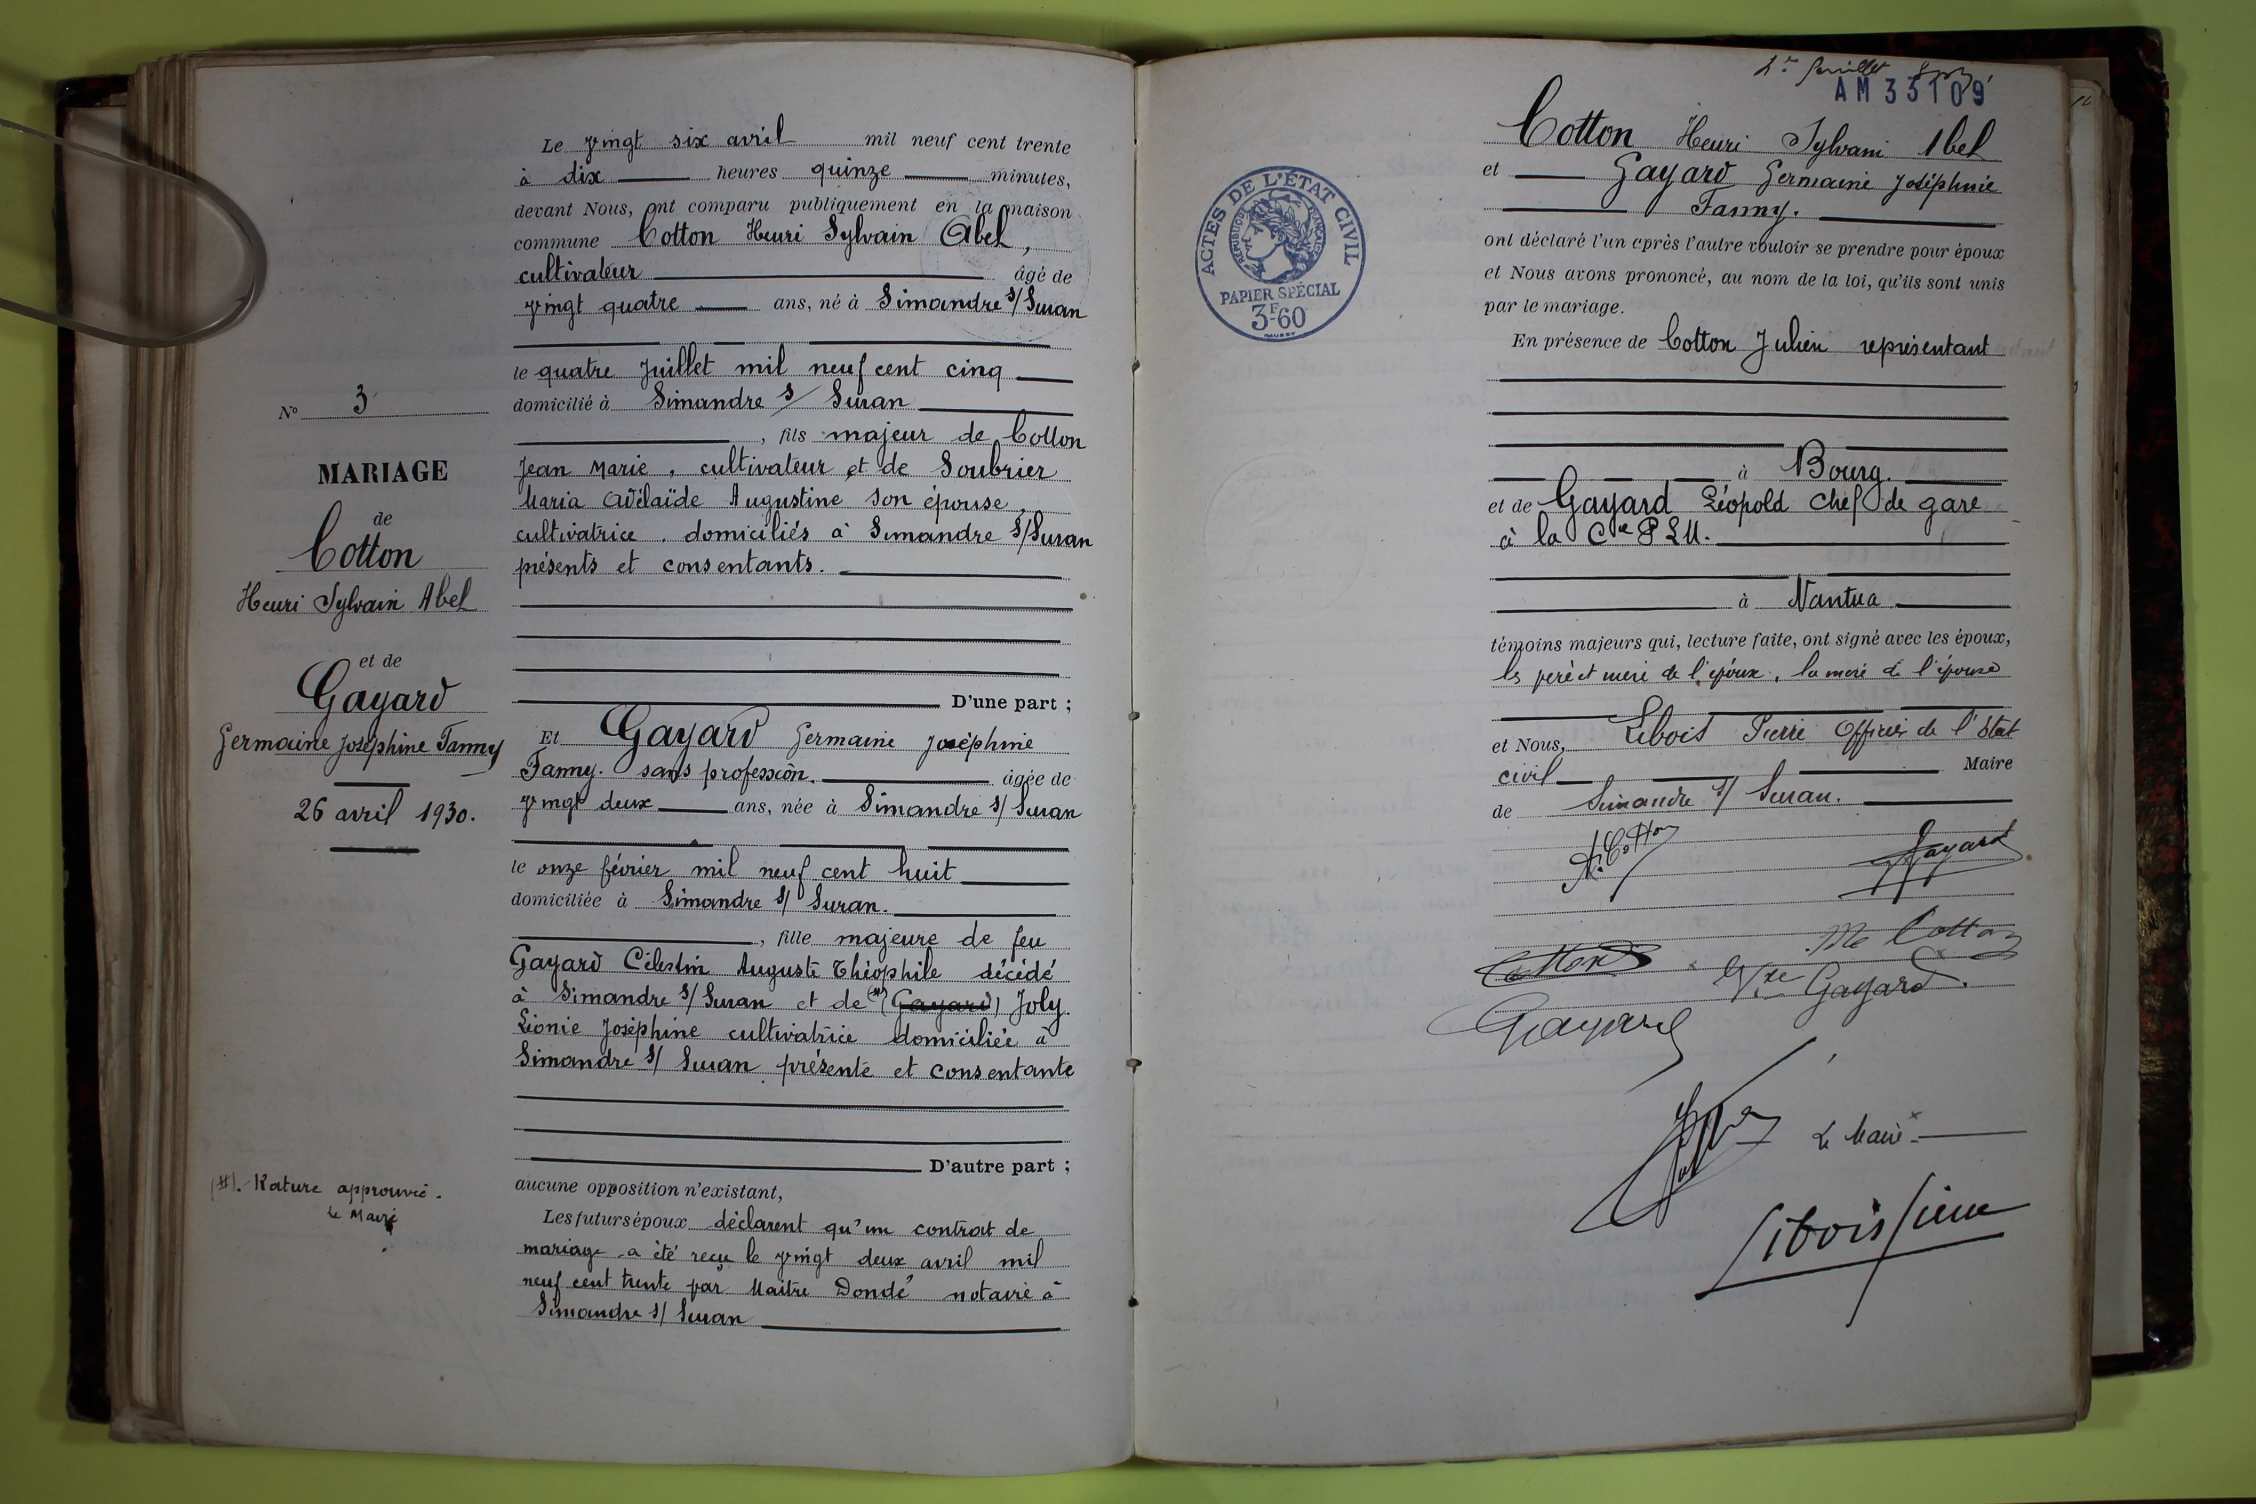 N° 3
MARIAGE
de
Cotton
Henri Sylvain Abel
et de
Gayard
Germaine Joséphine Fanny
26 avril 1930.
(#). Rature approuvée.
Le Maire
Le vingt six avril mil neuf cent trente
à dix heures quinze minutes,
devant Nous, ont comparu publiquement en la maison
commune Cotton Henri Sylvain Abel,
cultivateur âgé de
vingt quatre ans, né à Simandre s/ Suran
le quatre Juillet mil neuf cent cinq
domicilié à Simandre s/ Suran
, fils majeur de Cotton
Jean Marie, cultivateur et de Soubrier
Maria Adélaïde Augustine son épouse,
cultivatrice, domiciliés à Simandre s/ Suran
présents et consentants.
D'une part ;
Et Gayard Germaine Joséphine
Fanny. sans profession. âgée de
vingt deux ans, née à Simandre s/ Suran
le onze février mil neuf cent huit
domiciliée à Simandre s/ Suran.
, fille majeure de feu
Gayard Célestin Auguste Théophile décédé
à Simandre s/ Suran et de (#) (Gayard) Joly
Léonie Joséphine cultivatrice domiciliée à
Simandre s/ Suran présente et consentante
D'autre part ;
aucune opposition n'existant,
Les futurs époux déclarent qu'un contrat de
mariage a été reçu le vingt deux avril mil
neuf cent trente par Maître Dondé notaire à
Simandre s/ Suran
2e feuillet
AM 33109
ACTES DE L'ÉTAT CIVIL
RÉPUBLIQUE FRANÇAISE
PAPIER SPÉCIAL
3F60
Cotton Henri Sylvain Abel
et Gayard Germaine Joséphine
Fanny.
ont déclaré l'un après l'autre vouloir se prendre pour époux
et Nous avons prononcé, au nom de la loi, qu'ils sont unis
par le mariage.
En présence de Cotton Julien représentant
à Bourg.
et de Gayard Léopold chef de gare
à la Cie P L M.
à Nantua
témoins majeurs qui, lecture faite, ont signé avec les époux,
les père et mère de l'époux, la mère de l'épouse
et Nous, Libois Pierre Officier de l'Etat
civil Maire
de Simandre s/ Suran.
A. Cotton
Gayard
Cotton
Me Cotton
Vve Gayard.
Gayard
Le Maire
Libois Pierre